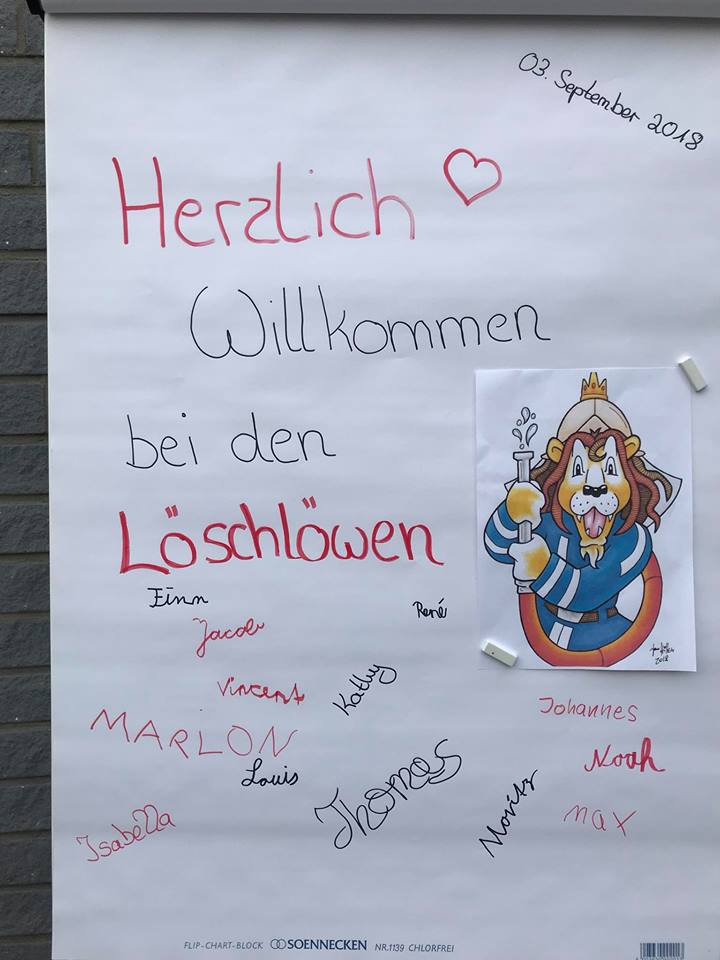 03. September 2018
Herzlich
Willkommen
bei den
Löschlöwen
Finn
René
Jacob
Vincent
Kathy
Johannes
MARLON
Noah
Louis
Thomas
Moritz
Max
Isabella
2018
FLIP-CHART-BLOCK SOENNECKEN NR.1139 CHLORFREI